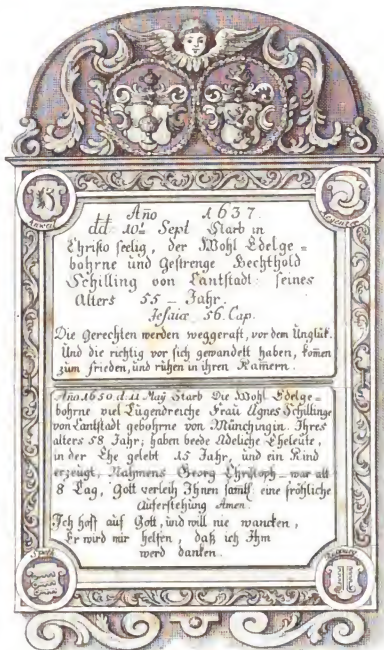 Año 1637.
dd. 10t Sept Starb in
Christo seelig, der Wohl Edelge=
bohrne und Gestrenge Bechthold
Schilling von Cantstadt seines
Alters 55 Jahr.
Jesaiæ 56. Cap.
Die Gerechten werden weggerafft, vor dem Unglük.
Und die richtig vor sich gewandelt haben, komen
zum frieden, und ruhen in ihren Kamern.
Año 1650 d. 11 Maÿ Starb Die Wohl Edelge=
bohrne viel Tugendreiche Frau Agnes Schillinge
von Cantstadt gebohrne von Münchingin. Ihres
alters 58 Jahr, haben beede Adeliche Eheleute,
in der Ehe gelebt 15 Jahr, und ein Kind
erzeugt, Nahmens Georg Christoph war alt
8 Tag, Gott verleih Ihnen samtl eine fröhliche
Auferstehung Amen.
Ich hoff auf Gott, und will nie wancken,
Er wird mir helfen, daß ich Ihm
werd danken.
Speth